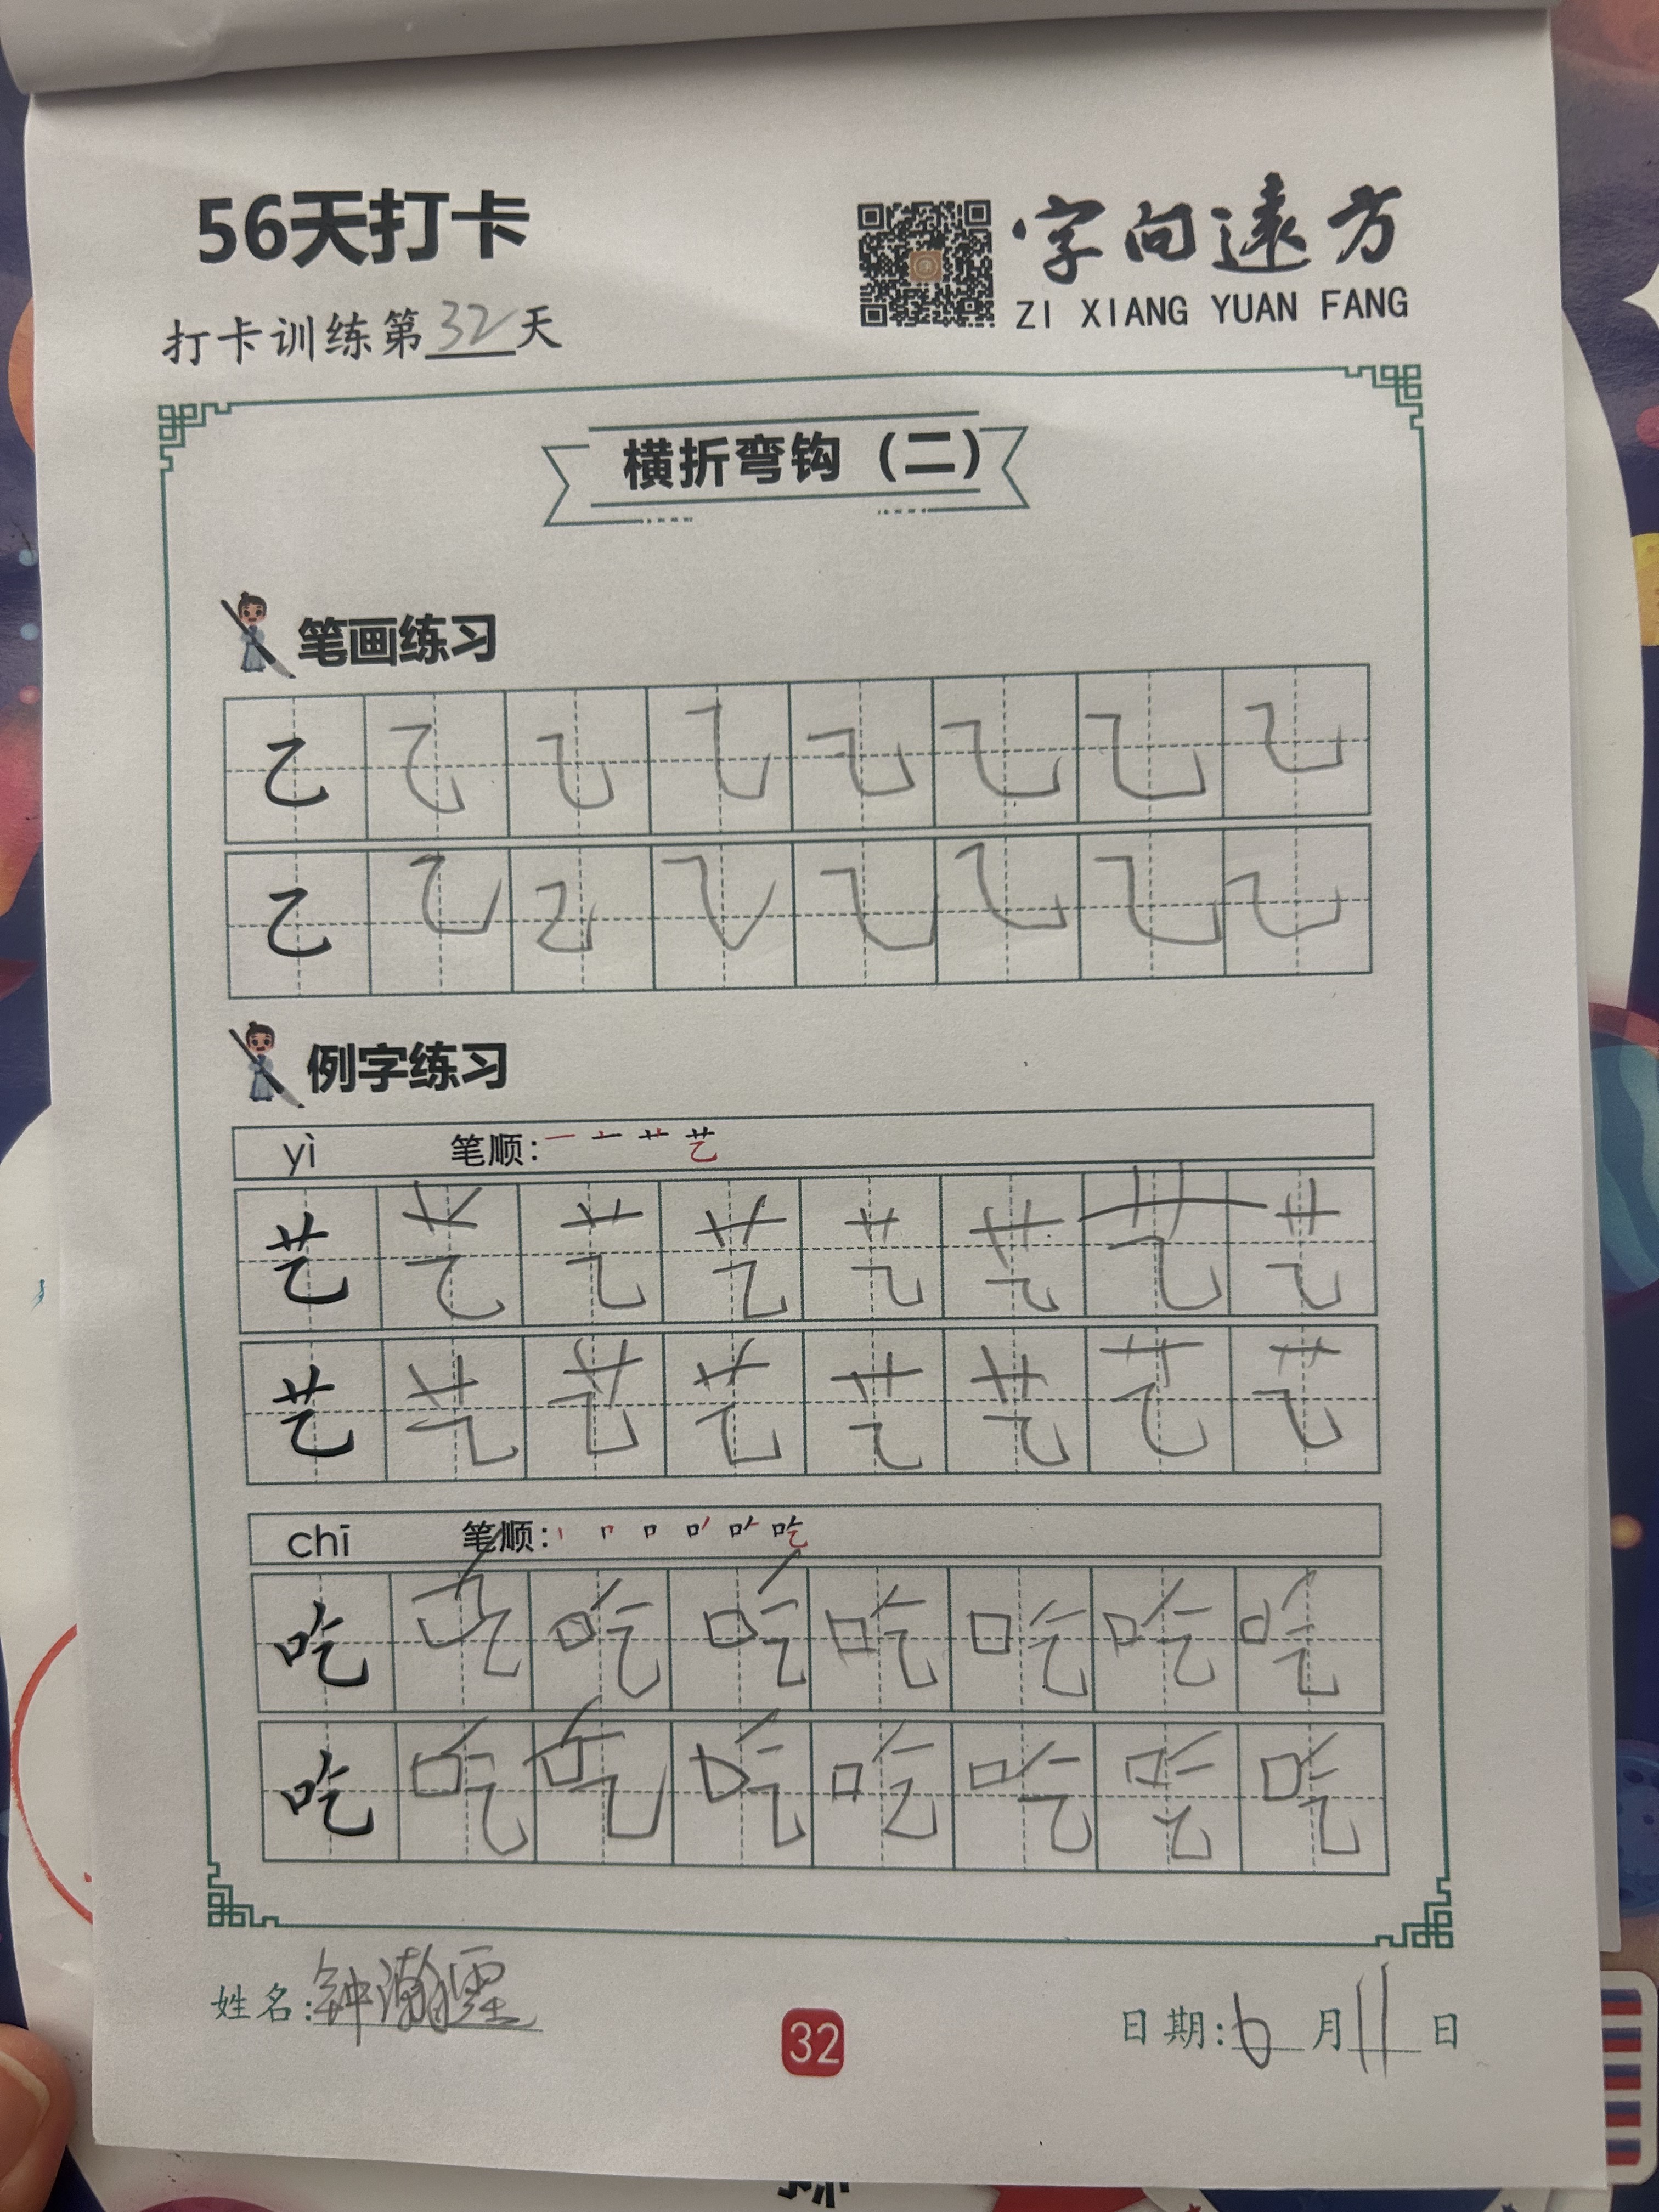 56天打卡
字向遠方
ZI XIANG YUAN FANG
打卡训练第32天
横折弯钩（二）
笔画练习
乙 乙 乙 乙 乙 乙 乙 乙
乙 乙 乙 乙 乙 乙 乙 乙
例字练习
yì 笔顺: 一 十 艹 艺
艺 艺 艺 艺 艺 艺 艺 艺
艺 艺 艺 艺 艺 艺 艺 艺
chī 笔顺: 丨 冂 口 吃
吃 吃 吃 吃 吃 吃 吃 吃
吃 吃 吃 吃 吃 吃 吃 吃
姓名:钟瀚霆
32
日期:6月11日